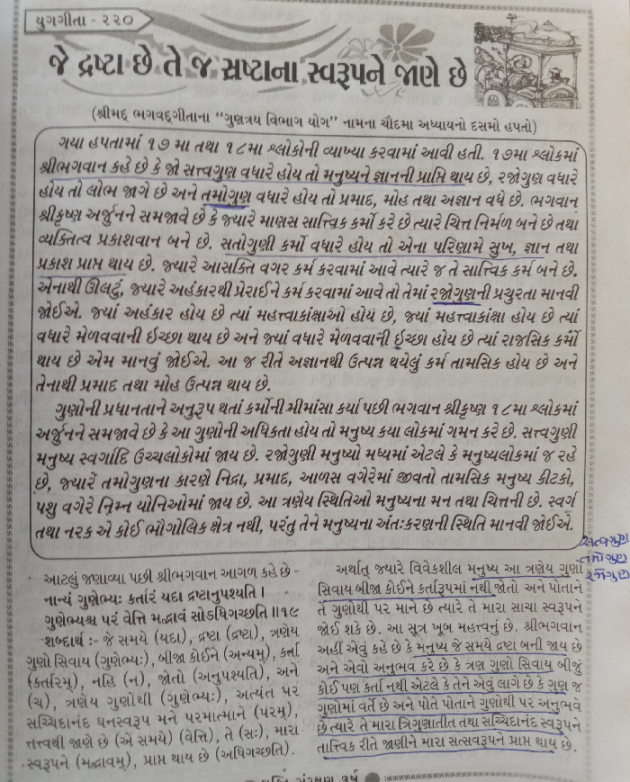 યુગગીતા - ૨૨૦
જે દ્રષ્ટા છે તે જ સ્રષ્ટાના સ્વરૂપને જાણે છે
(શ્રીમદ્ ભગવદ્ગીતાના “ગુણત્રય વિભાગ યોગ” નામના ચૌદમા અધ્યાયનો દસમો હપતો)
ગયા હપતામાં ૧૭ મા તથા ૧૮મા શ્લોકોની વ્યાખ્યા કરવામાં આવી હતી. ૧૭મા શ્લોકમાં
શ્રીભગવાન કહે છે કે જો સત્ત્વગુણ વધારે હોય તો મનુષ્યને જ્ઞાનની પ્રાપ્તિ થાય છે, રજોગુણ વધારે
હોય તો લોભ જાગે છે અને તમોગુણ વધારે હોય તો પ્રમાદ, મોહ તથા અજ્ઞાન વધે છે. ભગવાન
શ્રીકૃષ્ણ અર્જુનને સમજાવે છે કે જ્યારે માણસ સાત્ત્વિક કર્મો કરે છે ત્યારે ચિત્ત નિર્મળ બને છે તથા
વ્યક્તિત્વ પ્રકાશવાન બને છે. સતોગુણી કર્મો વધારે હોય તો એના પરિણામે સુખ, જ્ઞાન તથા
પ્રકાશ પ્રાપ્ત થાય છે. જ્યારે આસક્તિ વગર કર્મ કરવામાં આવે ત્યારે જ તે સાત્ત્વિક કર્મ બને છે.
એનાથી ઊલટું, જ્યારે અહંકારથી પ્રેરાઈને કર્મ કરવામાં આવે તો તેમાં રજોગુણની પ્રચુરતા માનવી
જોઈએ. જ્યાં અહંકાર હોય છે ત્યાં મહત્ત્વાકાંક્ષાઓ હોય છે, જ્યાં મહત્ત્વાકાંક્ષા હોય છે ત્યાં
વધારે મેળવવાની ઈચ્છા થાય છે અને જ્યાં વધારે મેળવવાની ઈચ્છા હોય છે ત્યાં રાજસિક કર્મો
થાય છે એમ માનવું જોઈએ. આ જ રીતે અજ્ઞાનથી ઉત્પન્ન થયેલું કર્મ તામસિક હોય છે અને
તેનાથી પ્રમાદ તથા મોહ ઉત્પન્ન થાય છે.
ગુણોની પ્રધાનતાને અનુરૂપ થતાં કર્મોની મીમાંસા કર્યા પછી ભગવાન શ્રીકૃષ્ણ ૧૮મા શ્લોકમાં
અર્જુનને સમજાવે છે કે આ ગુણોની અધિકતા હોય તો મનુષ્ય કયા લોકમાં ગમન કરે છે. સત્ત્વગુણી
મનુષ્ય સ્વર્ગાદિ ઉચ્ચલોકોમાં જાય છે. રજોગુણી મનુષ્યો મધ્યમાં એટલે કે મનુષ્યલોકમાં જ રહે
છે, જ્યારે તમોગુણના કારણે નિદ્રા, પ્રમાદ, આળસ વગેરેમાં જીવતો તામસિક મનુષ્ય કીટકો,
પશુ વગેરે નિમ્ન યોનિઓમાં જાય છે. આ ત્રણેય સ્થિતિઓ મનુષ્યના મન તથા ચિત્તની છે. સ્વર્ગ
તથા નરક એ કોઈ ભૌગોલિક ક્ષેત્ર નથી, પરંતુ તેને મનુષ્યના અંતઃકરણની સ્થિતિ માનવી જોઈએ.
આટલું જણાવ્યા પછી શ્રીભગવાન આગળ કહે છે -
નાન્યં ગુણેભ્યઃ કર્તારં યદા દ્રષ્ટાનુપશ્યતિ ।
ગુણેભ્યશ્ચ પરં વેત્તિ મદ્ભાવં સોઽધિગચ્છતિ ॥૧૯
શબ્દાર્થ :- જે સમયે (યદા), દ્રષ્ટા (દ્રષ્ટા), ત્રણેય
ગુણો સિવાય (ગુણેભ્યઃ), બીજા કોઈને (અન્યમ્), કર્તા
(કર્તારમ્), નહિ (ન), જોતો (અનુપશ્યતિ), અને
(ચ), ત્રણેય ગુણોથી (ગુણેભ્યઃ), અત્યંત પર
સચ્ચિદાનંદ ઘનસ્વરૂપ મને પરમાત્માને (પરમ્),
તત્ત્વથી જાણે છે (એ સમયે) (વેત્તિ), તે (સઃ), મારા
સ્વરૂપને (મદ્ભાવમ્), પ્રાપ્ત થાય છે (અધિગચ્છતિ).
અર્થાત્ જ્યારે વિવેકશીલ મનુષ્ય આ ત્રણેય ગુણો
સિવાય બીજા કોઈને કર્તારૂપમાં નથી જોતો અને પોતાને
તે ગુણોથી પર માને છે ત્યારે તે મારા સાચા સ્વરૂપને
જોઈ શકે છે. આ સૂત્ર ખૂબ મહત્ત્વનું છે. શ્રીભગવાન
અહીં એવું કહે છે કે મનુષ્ય જે સમયે દ્રષ્ટા બની જાય છે
અને એવો અનુભવ કરે છે કે ત્રણ ગુણો સિવાય બીજું
કોઈ પણ કર્તા નથી એટલે કે તેને એવું લાગે છે કે ગુણ જ
ગુણોમાં વર્તે છે અને પોતે પોતાને ગુણોથી પર અનુભવે
છે ત્યારે તે મારા ત્રિગુણાતીત તથા સચ્ચિદાનંદ સ્વરૂપને
તાત્ત્વિક રીતે જાણીને મારા સત્સ્વરૂપને પ્રાપ્ત થાય છે.
સત્વગુણ
તમોગુણ
રજોગુણ